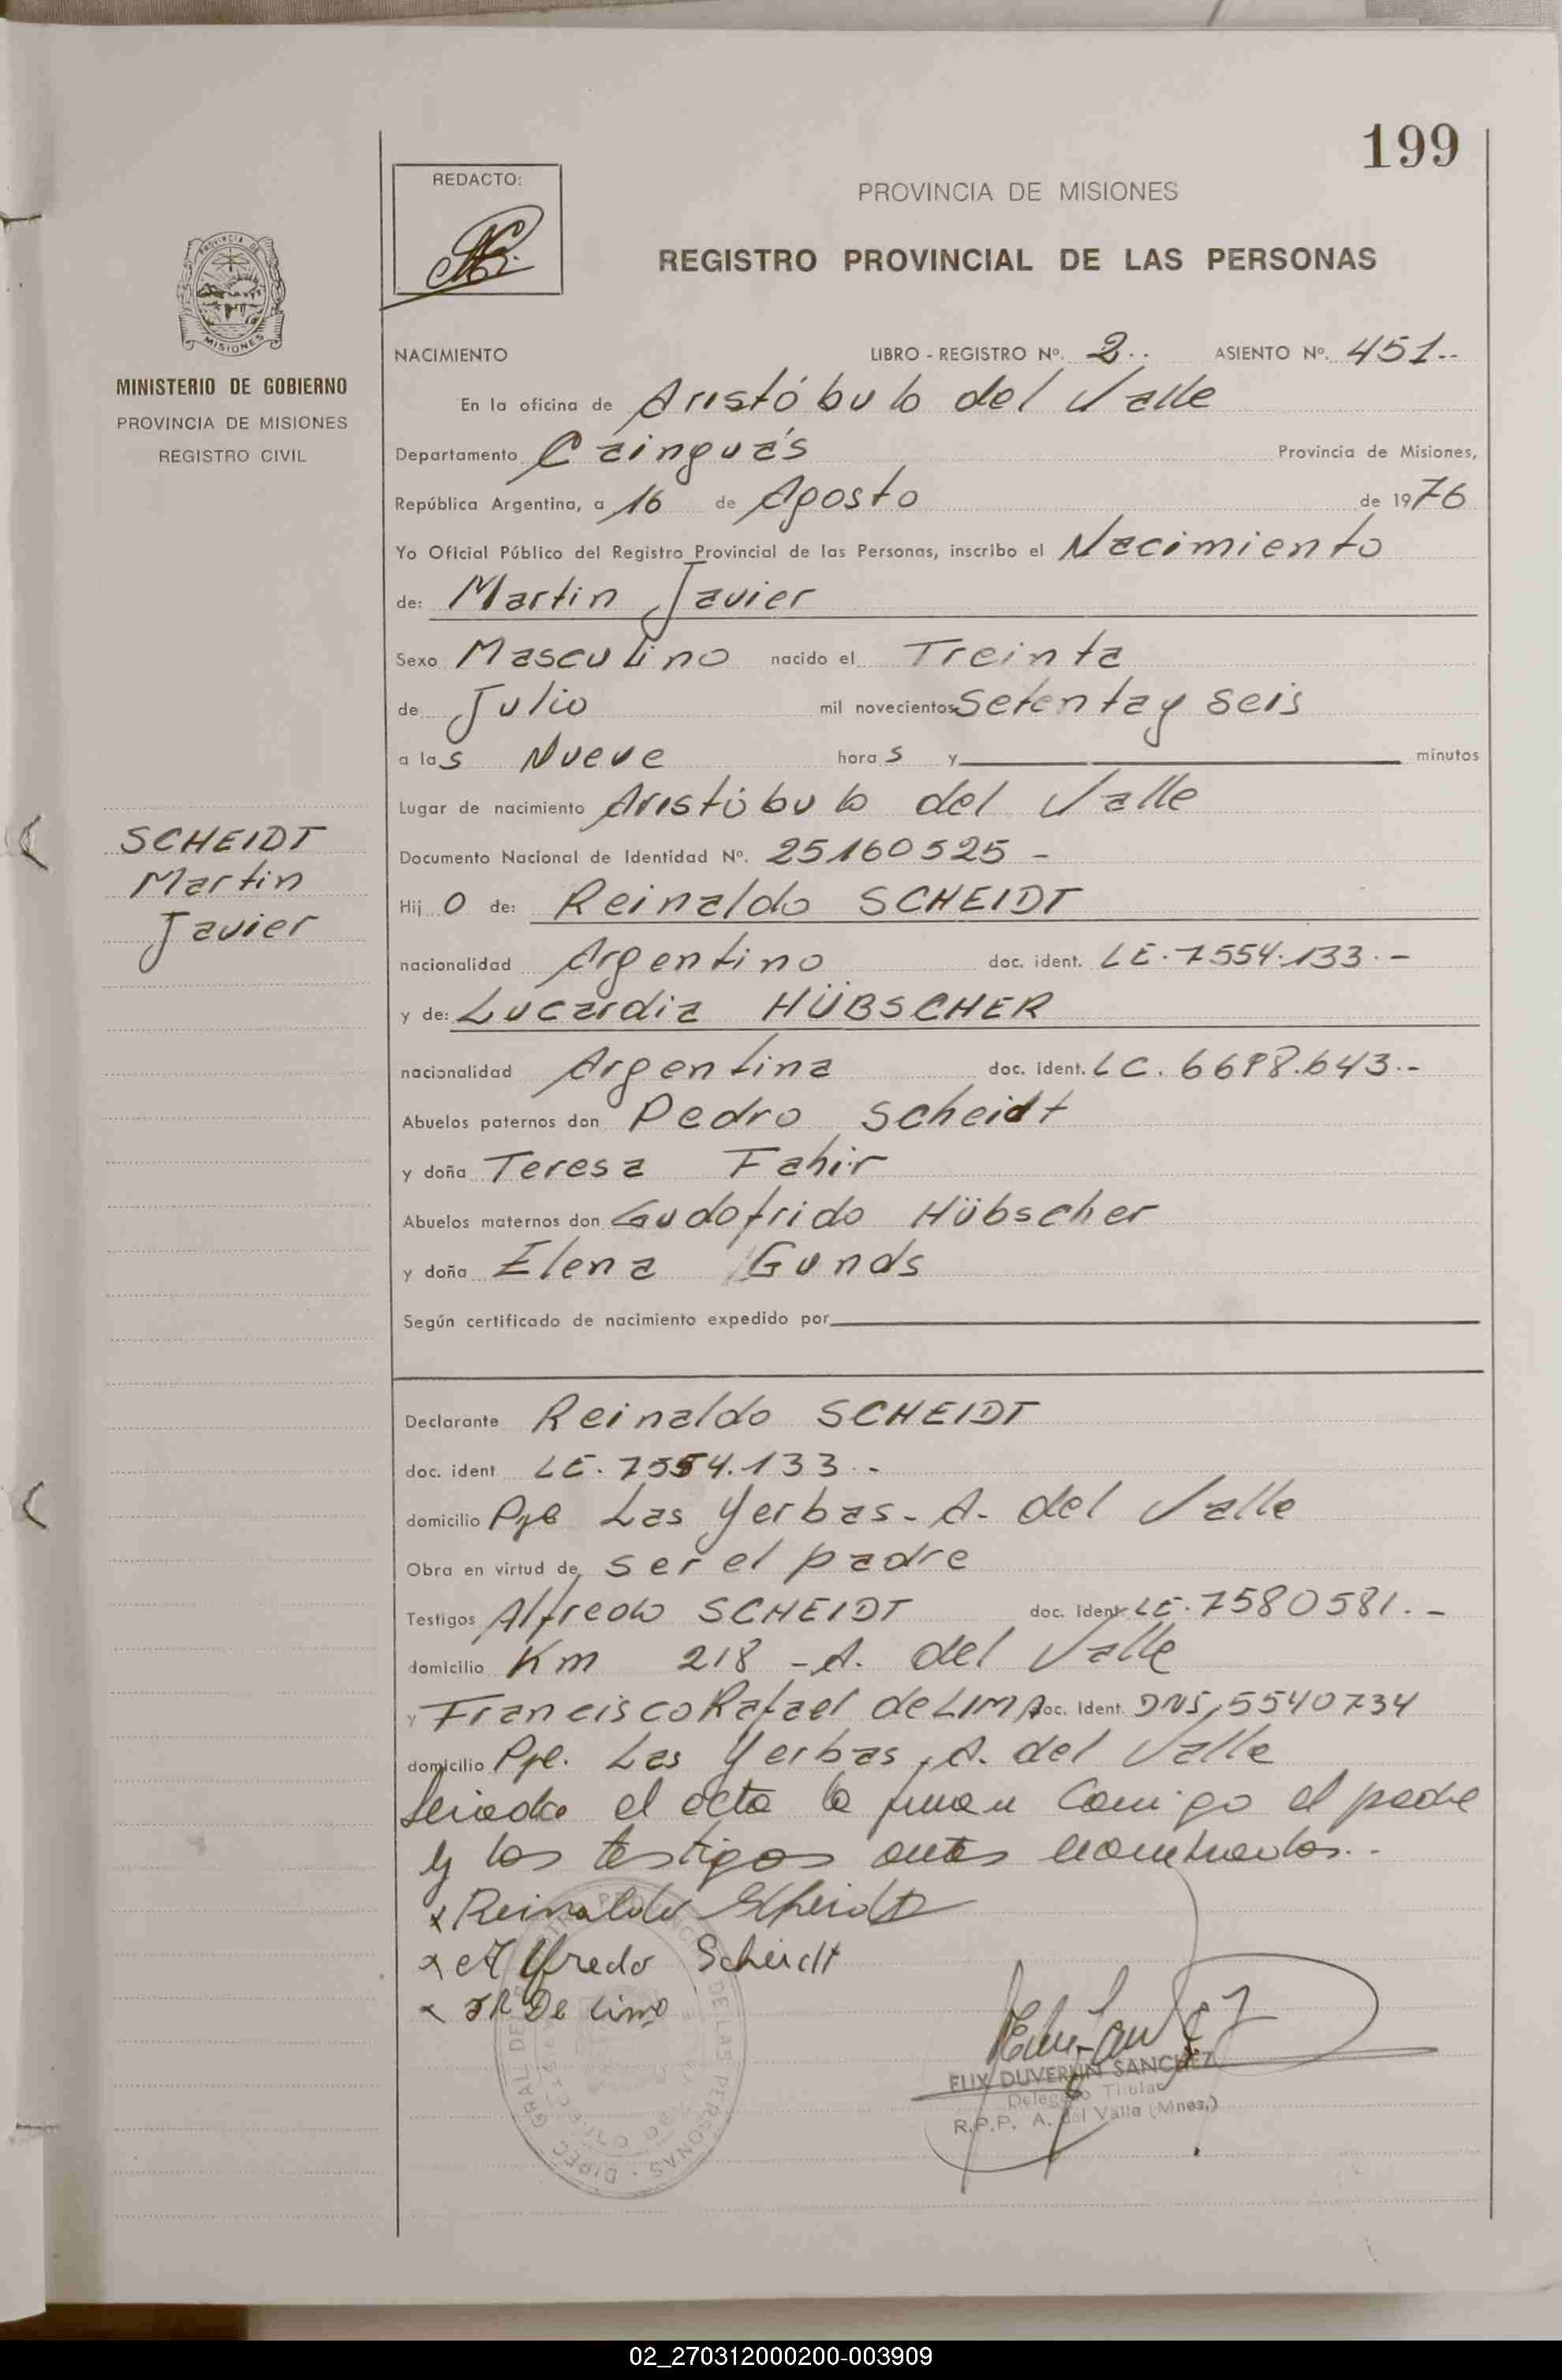 199
REDACTO:
PROVINCIA DE MISIONES
REGISTRO PROVINCIAL DE LAS PERSONAS
PROVINCIA DE
MISIONES
MINISTERIO DE GOBIERNO
PROVINCIA DE MISIONES
REGISTRO CIVIL
NACIMIENTO LIBRO - REGISTRO Nº. 2.. ASIENTO Nº. 451..
En la oficina de Aristóbulo del Valle
Departamento Cainguás Provincia de Misiones,
República Argentina, a 16 de Agosto de 1976
Yo Oficial Público del Registro Provincial de las Personas, inscribo el Nacimiento
de: Martin Javier
Sexo Masculino nacido el Treinta
de Julio mil novecientos Setenta y seis
a las Nueve horas y minutos
Lugar de nacimiento Aristóbulo del Valle
SCHEIDT
Martin
Javier
Documento Nacional de Identidad Nº. 25160525 -
Hijo de: Reinaldo SCHEIDT
nacionalidad Argentino doc. ident. LE. 7554.133.-
y de: Lucardia HÜBSCHER
nacionalidad Argentina doc. ident. LC. 6698.643.-
Abuelos paternos don Pedro Scheidt
y doña Teresa Fahir
Abuelos maternos don Gudofrido Hübscher
y doña Elena Gunds
Según certificado de nacimiento expedido por
Declarante Reinaldo SCHEIDT
doc. ident LE. 7554.133.-
domicilio Pje Las Yerbas - A. del Valle
Obra en virtud de ser el padre
Testigos Alfredo SCHEIDT doc. Ident LE. 7580581.-
domicilio Km 218 - A. del Valle
y Francisco Rafael de LIMA doc. Ident. DNI, 5540734
domicilio Pje. Las Yerbas, A. del Valle
leida el acta la firman conmigo el padre
y los testigos antes nombrados..
x Reinaldo Scheidt
x Alfredo Scheidt
x FR De Lima
DIREC. GRAL DE PROVINCIAL DE LAS PERSONAS
SANCHEZ
Delegado Titular
R.P.P. A. del Valle (Mnes.)
02_270312000200-003909